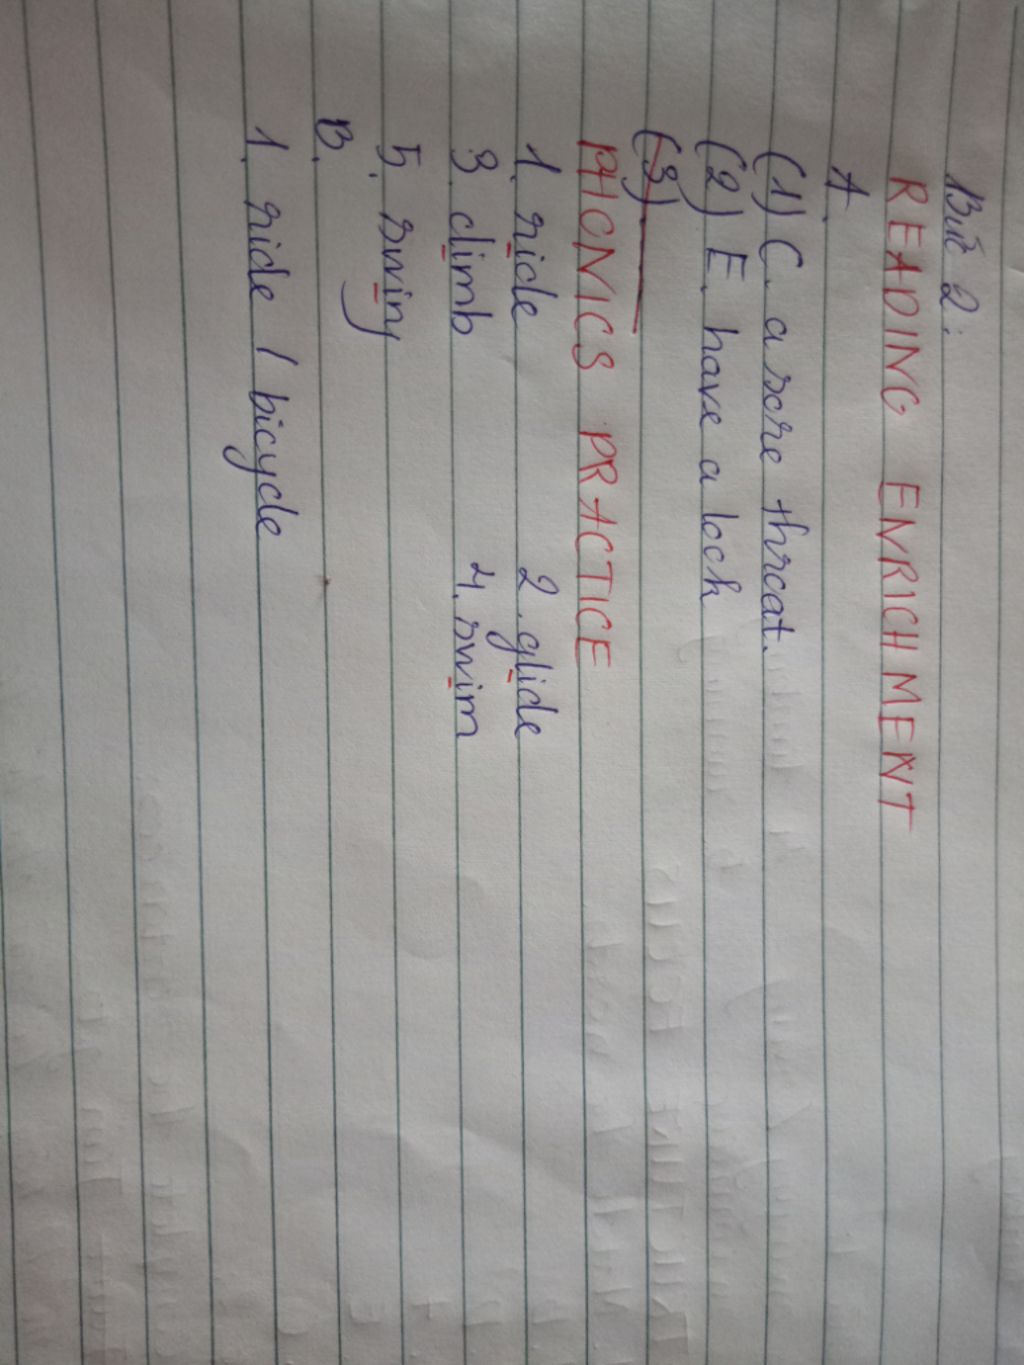 Bài 2:
READING ENRICHMENT
A.
(1) C. a sore throat.
(2) E. have a look
(3)
PHONICS PRACTICE
1. ride 2. glide
3. climb 4. swim
5. swing
B.
1. ride / bicycle